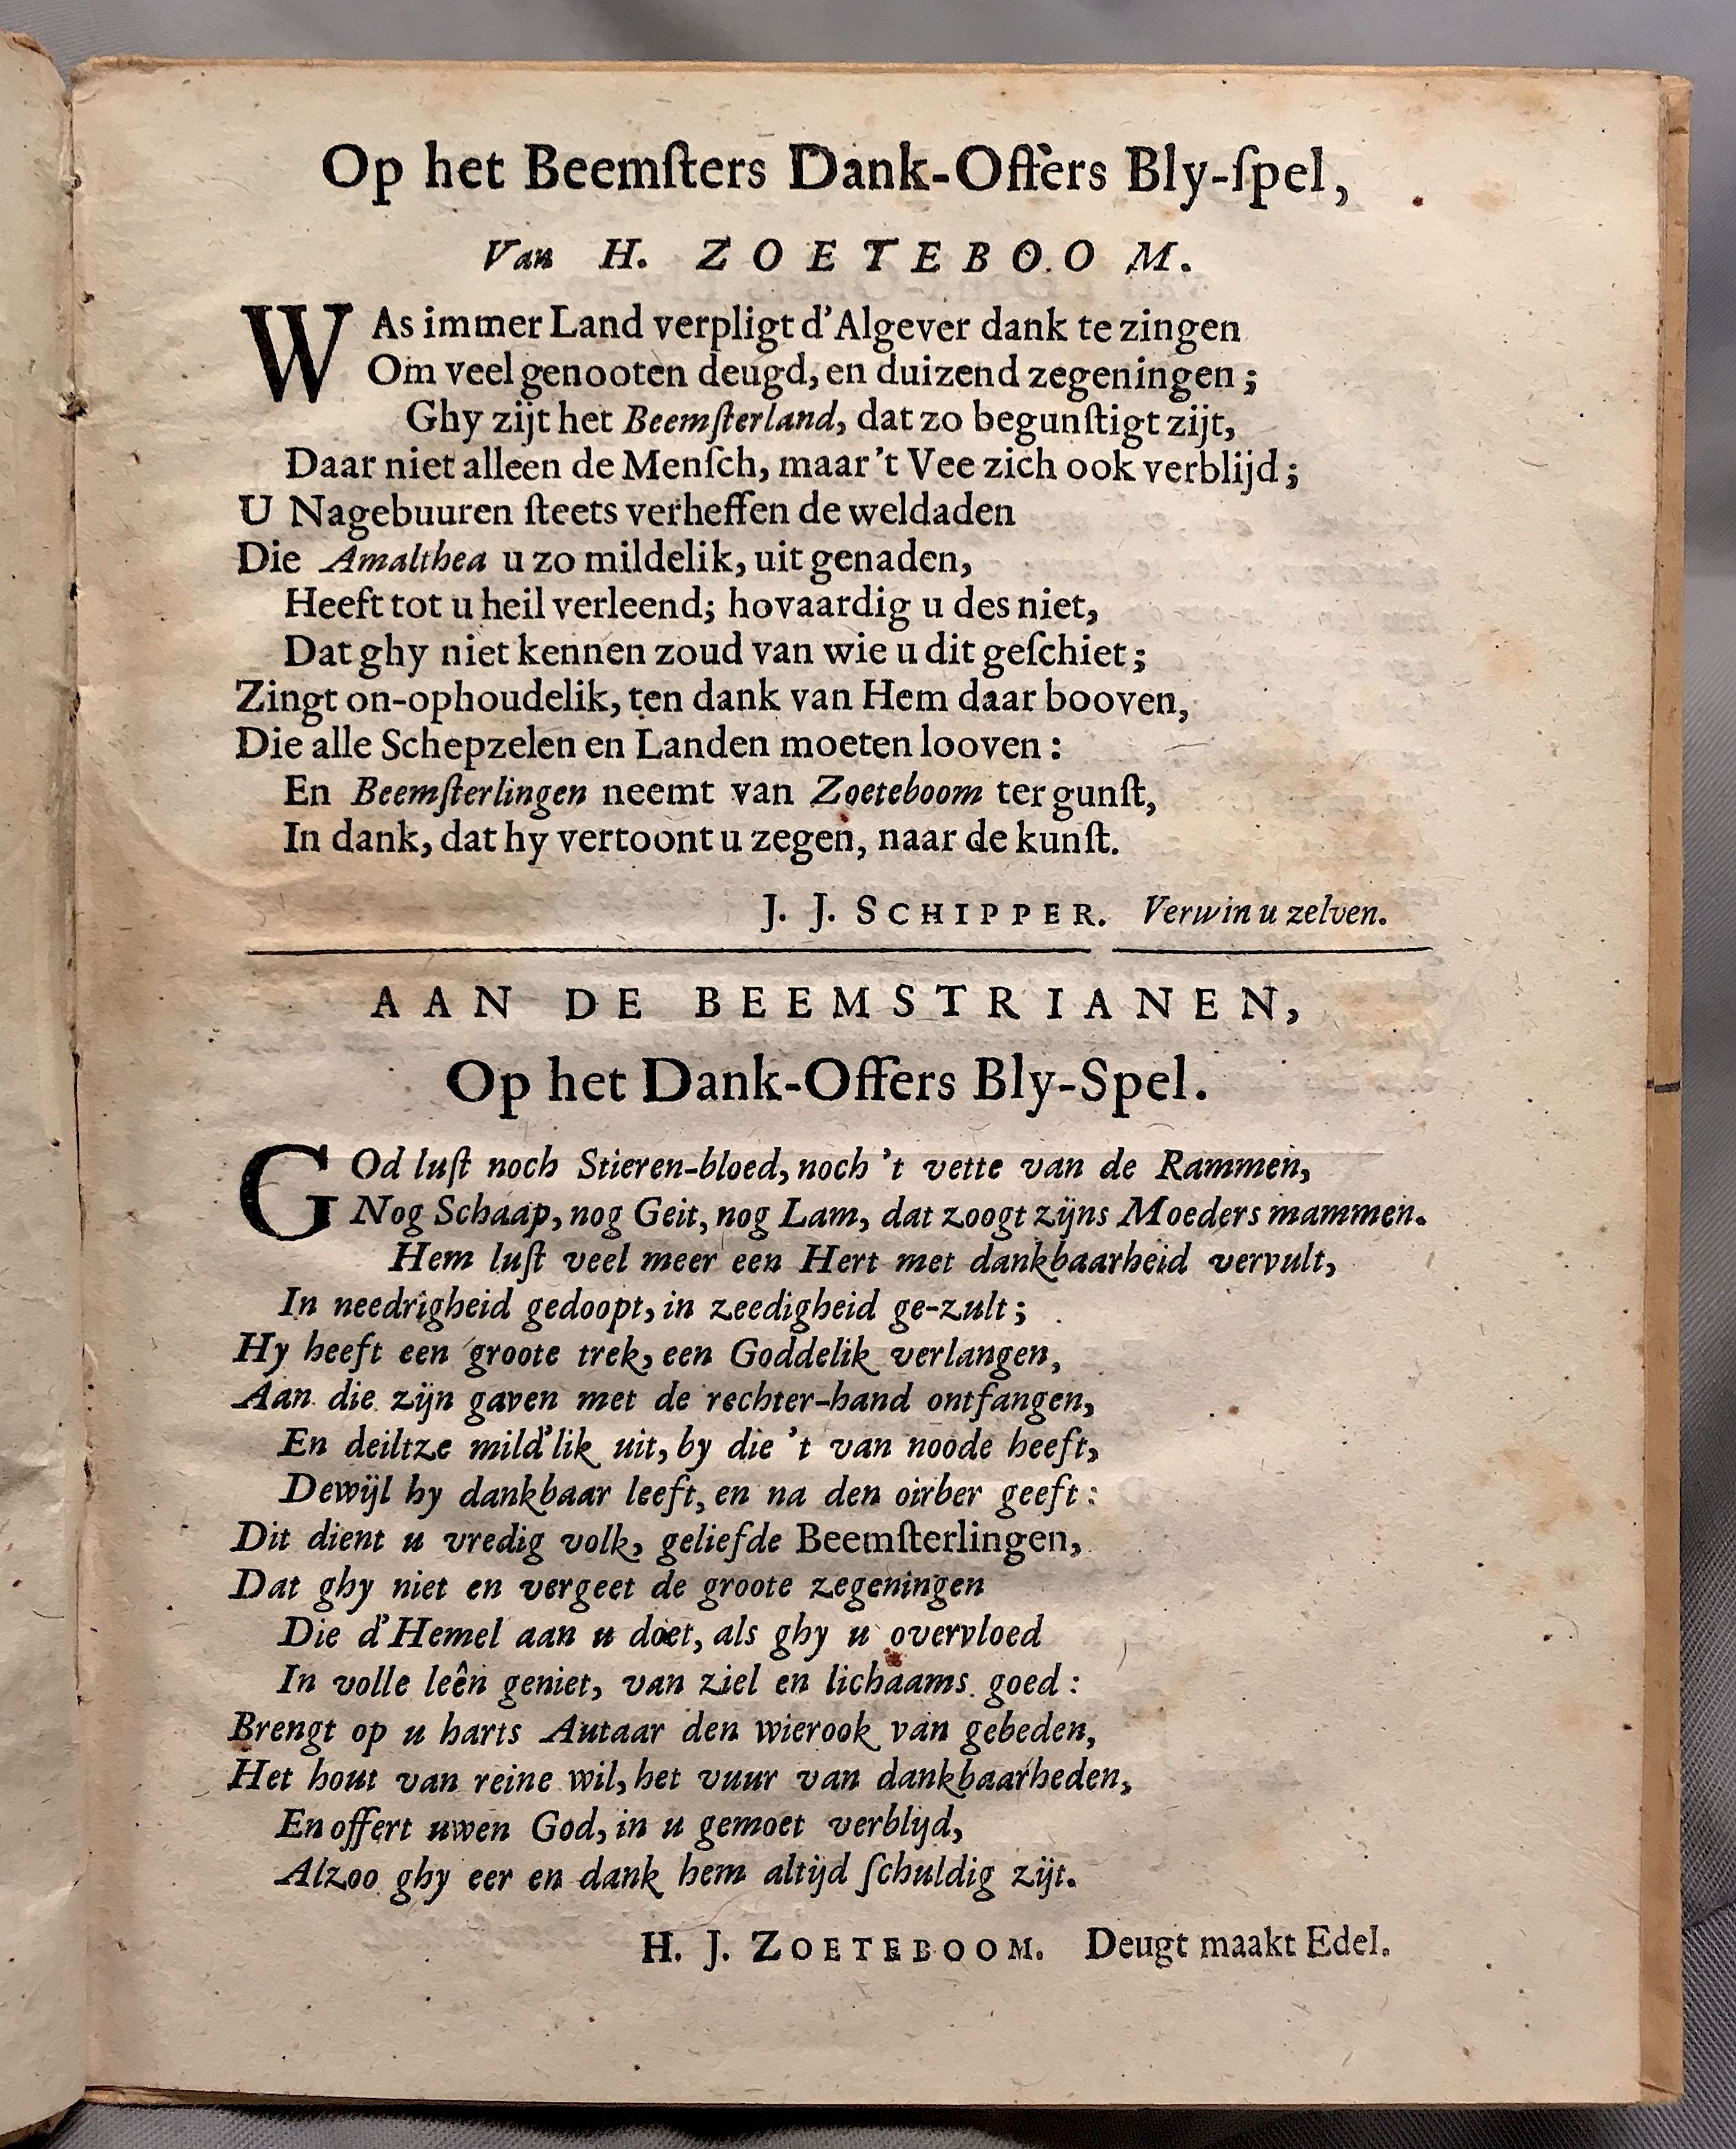 Op het Beemſters Dank-Offers Bly-ſpel,
Van H. ZOETEBOOM.
WAs immer Land verpligt d'Algever dank te zingen
Om veel genooten deugd, en duizend zegeningen;
Ghy zijt het Beemſterland, dat zo begunſtigt zijt,
Daar niet alleen de Menſch, maar 't Vee zich ook verblijd;
U Nagebuuren ſteets verheffen de weldaden
Die Amalthea u zo mildelik, uit genaden,
Heeft tot u heil verleend; hovaardig u des niet,
Dat ghy niet kennen zoud van wie u dit geſchiet;
Zingt on-ophoudelik, ten dank van Hem daar booven,
Die alle Schepzelen en Landen moeten looven:
En Beemſterlingen neemt van Zoeteboom ter gunſt,
In dank, dat hy vertoont u zegen, naar de kunſt.
J. J. SCHIPPER. Verwin u zelven.
AAN DE BEEMSTRIANEN,
Op het Dank-Offers Bly-Spel.
GOd luſt noch Stieren-bloed, noch 't vette van de Rammen,
Nog Schaap, nog Geit, nog Lam, dat zoogt zijns Moeders mammen.
Hem luſt veel meer een Hert met dankbaarheid vervult,
In needrigheid gedoopt, in zeedigheid ge-zult;
Hy heeft een groote trek, een Goddelik verlangen,
Aan die zijn gaven met de rechter-hand ontfangen,
En deiltze mild'lik uit, by die 't van noode heeft,
Dewijl hy dankbaar leeft, en na den oirber geeft:
Dit dient u vredig volk, geliefde Beemſterlingen,
Dat ghy niet en vergeet de groote zegeningen
Die d'Hemel aan u doet, als ghy u overvloed
In volle leên geniet, van ziel en lichaams goed:
Brengt op u harts Autaar den wierook van gebeden,
Het hout van reine wil, het vuur van dankbaarheden,
En offert uwen God, in u gemoet verblijd,
Alzoo ghy eer en dank hem altijd ſchuldig zijt.
H. J. ZOETEBOOM. Deugt maakt Edel.